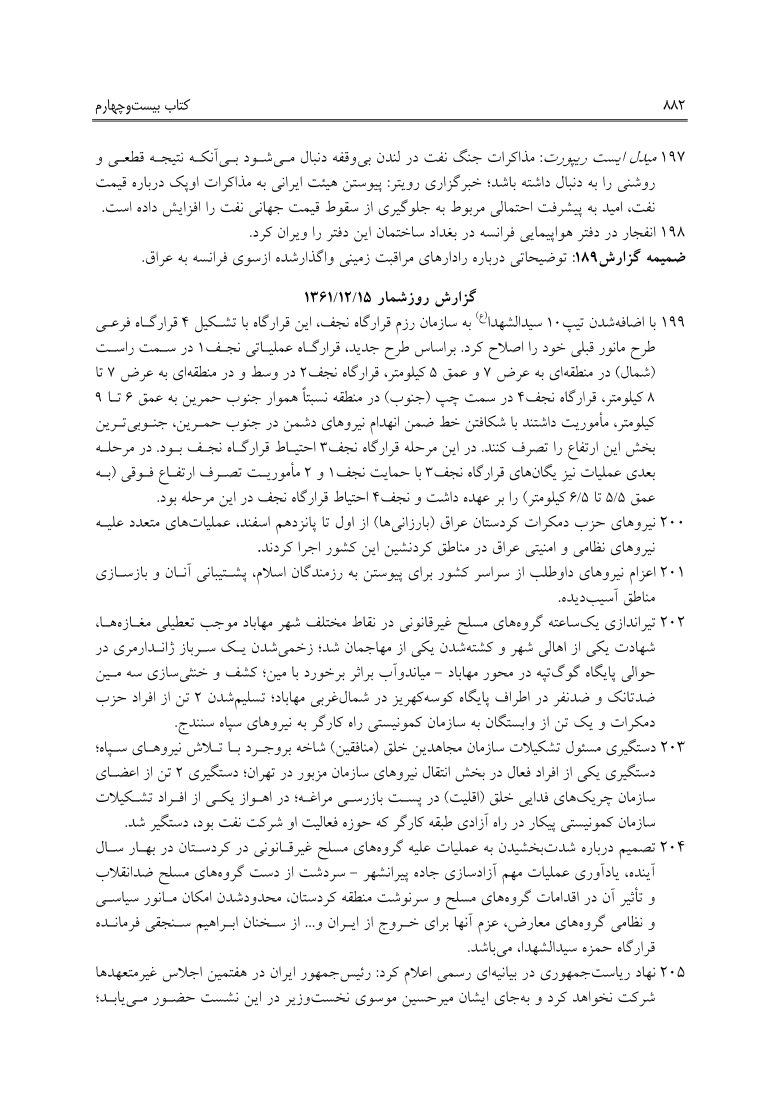 ۸۸۲ کتاب بیست‌وچهارم
۱۹۷ میدل ایست ریپورت: مذاکرات جنگ نفت در لندن بی‌وقفه دنبال می‌شود بی‌آنکه نتیجه قطعی و
روشنی را به دنبال داشته باشد؛ خبرگزاری رویتر: پیوستن هیئت ایرانی به مذاکرات اوپک درباره قیمت
نفت، امید به پیشرفت احتمالی مربوط به جلوگیری از سقوط قیمت جهانی نفت را افزایش داده است.
۱۹۸ انفجار در دفتر هواپیمایی فرانسه در بغداد ساختمان این دفتر را ویران کرد.
ضمیمه گزارش۱۸۹: توضیحاتی درباره رادارهای مراقبت زمینی واگذارشده ازسوی فرانسه به عراق.
گزارش روزشمار ۱۳۶۱/۱۲/۱۵
۱۹۹ با اضافه‌شدن تیپ۱۰ سیدالشهدا(ع) به سازمان رزم قرارگاه نجف، این قرارگاه با تشکیل ۴ قرارگاه فرعی
طرح مانور قبلی خود را اصلاح کرد. براساس طرح جدید، قرارگاه عملیاتی نجف۱ در سمت راست
(شمال) در منطقه‌ای به عرض ۷ و عمق ۵ کیلومتر، قرارگاه نجف۲ در وسط و در منطقه‌ای به عرض ۷ تا
۸ کیلومتر، قرارگاه نجف۴ در سمت چپ (جنوب) در منطقه نسبتاً هموار جنوب حمرین به عمق ۶ تا ۹
کیلومتر، مأموریت داشتند با شکافتن خط ضمن انهدام نیروهای دشمن در جنوب حمرین، جنوبی‌ترین
بخش این ارتفاع را تصرف کنند. در این مرحله قرارگاه نجف۳ احتیاط قرارگاه نجف بود. در مرحله
بعدی عملیات نیز یگان‌های قرارگاه نجف۳ با حمایت نجف۱ و ۲ مأموریت تصرف ارتفاع فوقی (به
عمق ۵/۵ تا ۶/۵ کیلومتر) را بر عهده داشت و نجف۴ احتیاط قرارگاه نجف در این مرحله بود.
۲۰۰ نیروهای حزب دمکرات کردستان عراق (بارزانی‌ها) از اول تا پانزدهم اسفند، عملیات‌های متعدد علیه
نیروهای نظامی و امنیتی عراق در مناطق کردنشین این کشور اجرا کردند.
۲۰۱ اعزام نیروهای داوطلب از سراسر کشور برای پیوستن به رزمندگان اسلام، پشتیبانی آنان و بازسازی
مناطق آسیب‌دیده.
۲۰۲ تیراندازی یک‌ساعته گروه‌های مسلح غیرقانونی در نقاط مختلف شهر مهاباد موجب تعطیلی مغازه‌ها،
شهادت یکی از اهالی شهر و کشته‌شدن یکی از مهاجمان شد؛ زخمی‌شدن یک سرباز ژاندارمری در
حوالی پایگاه گوگ‌تپه در محور مهاباد - میاندوآب براثر برخورد با مین؛ کشف و خنثی‌سازی سه مین
ضدتانک و ضدنفر در اطراف پایگاه کوسه‌کهریز در شمال‌غربی مهاباد؛ تسلیم‌شدن ۲ تن از افراد حزب
دمکرات و یک تن از وابستگان به سازمان کمونیستی راه کارگر به نیروهای سپاه سنندج.
۲۰۳ دستگیری مسئول تشکیلات سازمان مجاهدین خلق (منافقین) شاخه بروجرد با تلاش نیروهای سپاه؛
دستگیری یکی از افراد فعال در بخش انتقال نیروهای سازمان مزبور در تهران؛ دستگیری ۲ تن از اعضای
سازمان چریک‌های فدایی خلق (اقلیت) در پست بازرسی مراغه؛ در اهواز یکی از افراد تشکیلات
سازمان کمونیستی پیکار در راه آزادی طبقه کارگر که حوزه فعالیت او شرکت نفت بود، دستگیر شد.
۲۰۴ تصمیم درباره شدت‌بخشیدن به عملیات علیه گروه‌های مسلح غیرقانونی در کردستان در بهار سال
آینده، یادآوری عملیات مهم آزادسازی جاده پیرانشهر - سردشت از دست گروه‌های مسلح ضدانقلاب
و تأثیر آن در اقدامات گروه‌های مسلح و سرنوشت منطقه کردستان، محدودشدن امکان مانور سیاسی
و نظامی گروه‌های معارض، عزم آنها برای خروج از ایران و... از سخنان ابراهیم سنجقی فرمانده
قرارگاه حمزه سیدالشهدا، می‌باشد.
۲۰۵ نهاد ریاست‌جمهوری در بیانیه‌ای رسمی اعلام کرد: رئیس‌جمهور ایران در هفتمین اجلاس غیرمتعهدها
شرکت نخواهد کرد و به‌جای ایشان میرحسین موسوی نخست‌وزیر در این نشست حضور می‌یابد؛